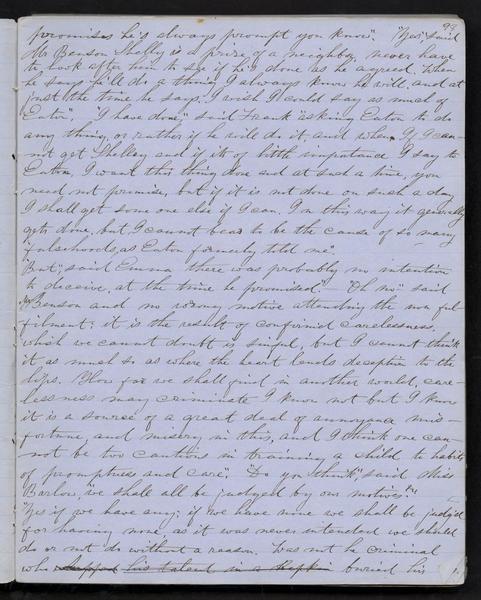 93
promises he's always prompt you know". "Yes" said
Mr Benson Shelly is a prize of a neighbor, never have
to look after him to see if he's done as he agreed. When
he says he'll do a thing I always know he will, and at
just the time he says, I wish I could say as much of
Eaton. "I have done," said Frank "asking Eaton to do
any thing, or rather if he will do it, and when. If I can-
not get Shelley and if its of little importance I say to
Eaton, I want this thing done and at such a time, you
need not promise, but if it is not done on such a day
I shall get some one else if I can. In this way it generally
gets done, but I cannot bear to be the cause of so many
falsehoods, as Eaton formerly told me".
"But," said Emma, there was probably no intention
to deceive, at the time he promised." "Oh no" said
Mr Benson and no wrong motive attending the non ful-
filment; it is the result of confirmed carelessness.
which we cannot doubt is sinful, but I cannot think
it as much so as where the heart lends deception to the
lips. How far we shall find in another world, care-
lessness may criminate I know not but I know
it is a source of a great deal of annoyance mis-
fortune, and misery in this, and I think one can-
not be too cautious in training a child to habits
of promptness and care". "Do you think", said Miss
Barlow, "we shall all be judged by our motives?"
"Yes if we have any; if we have none we shall be judg'd
for having none as it was never intended we should
do or not do without a reason. Was not he criminal
who his talent in a napkin buried his